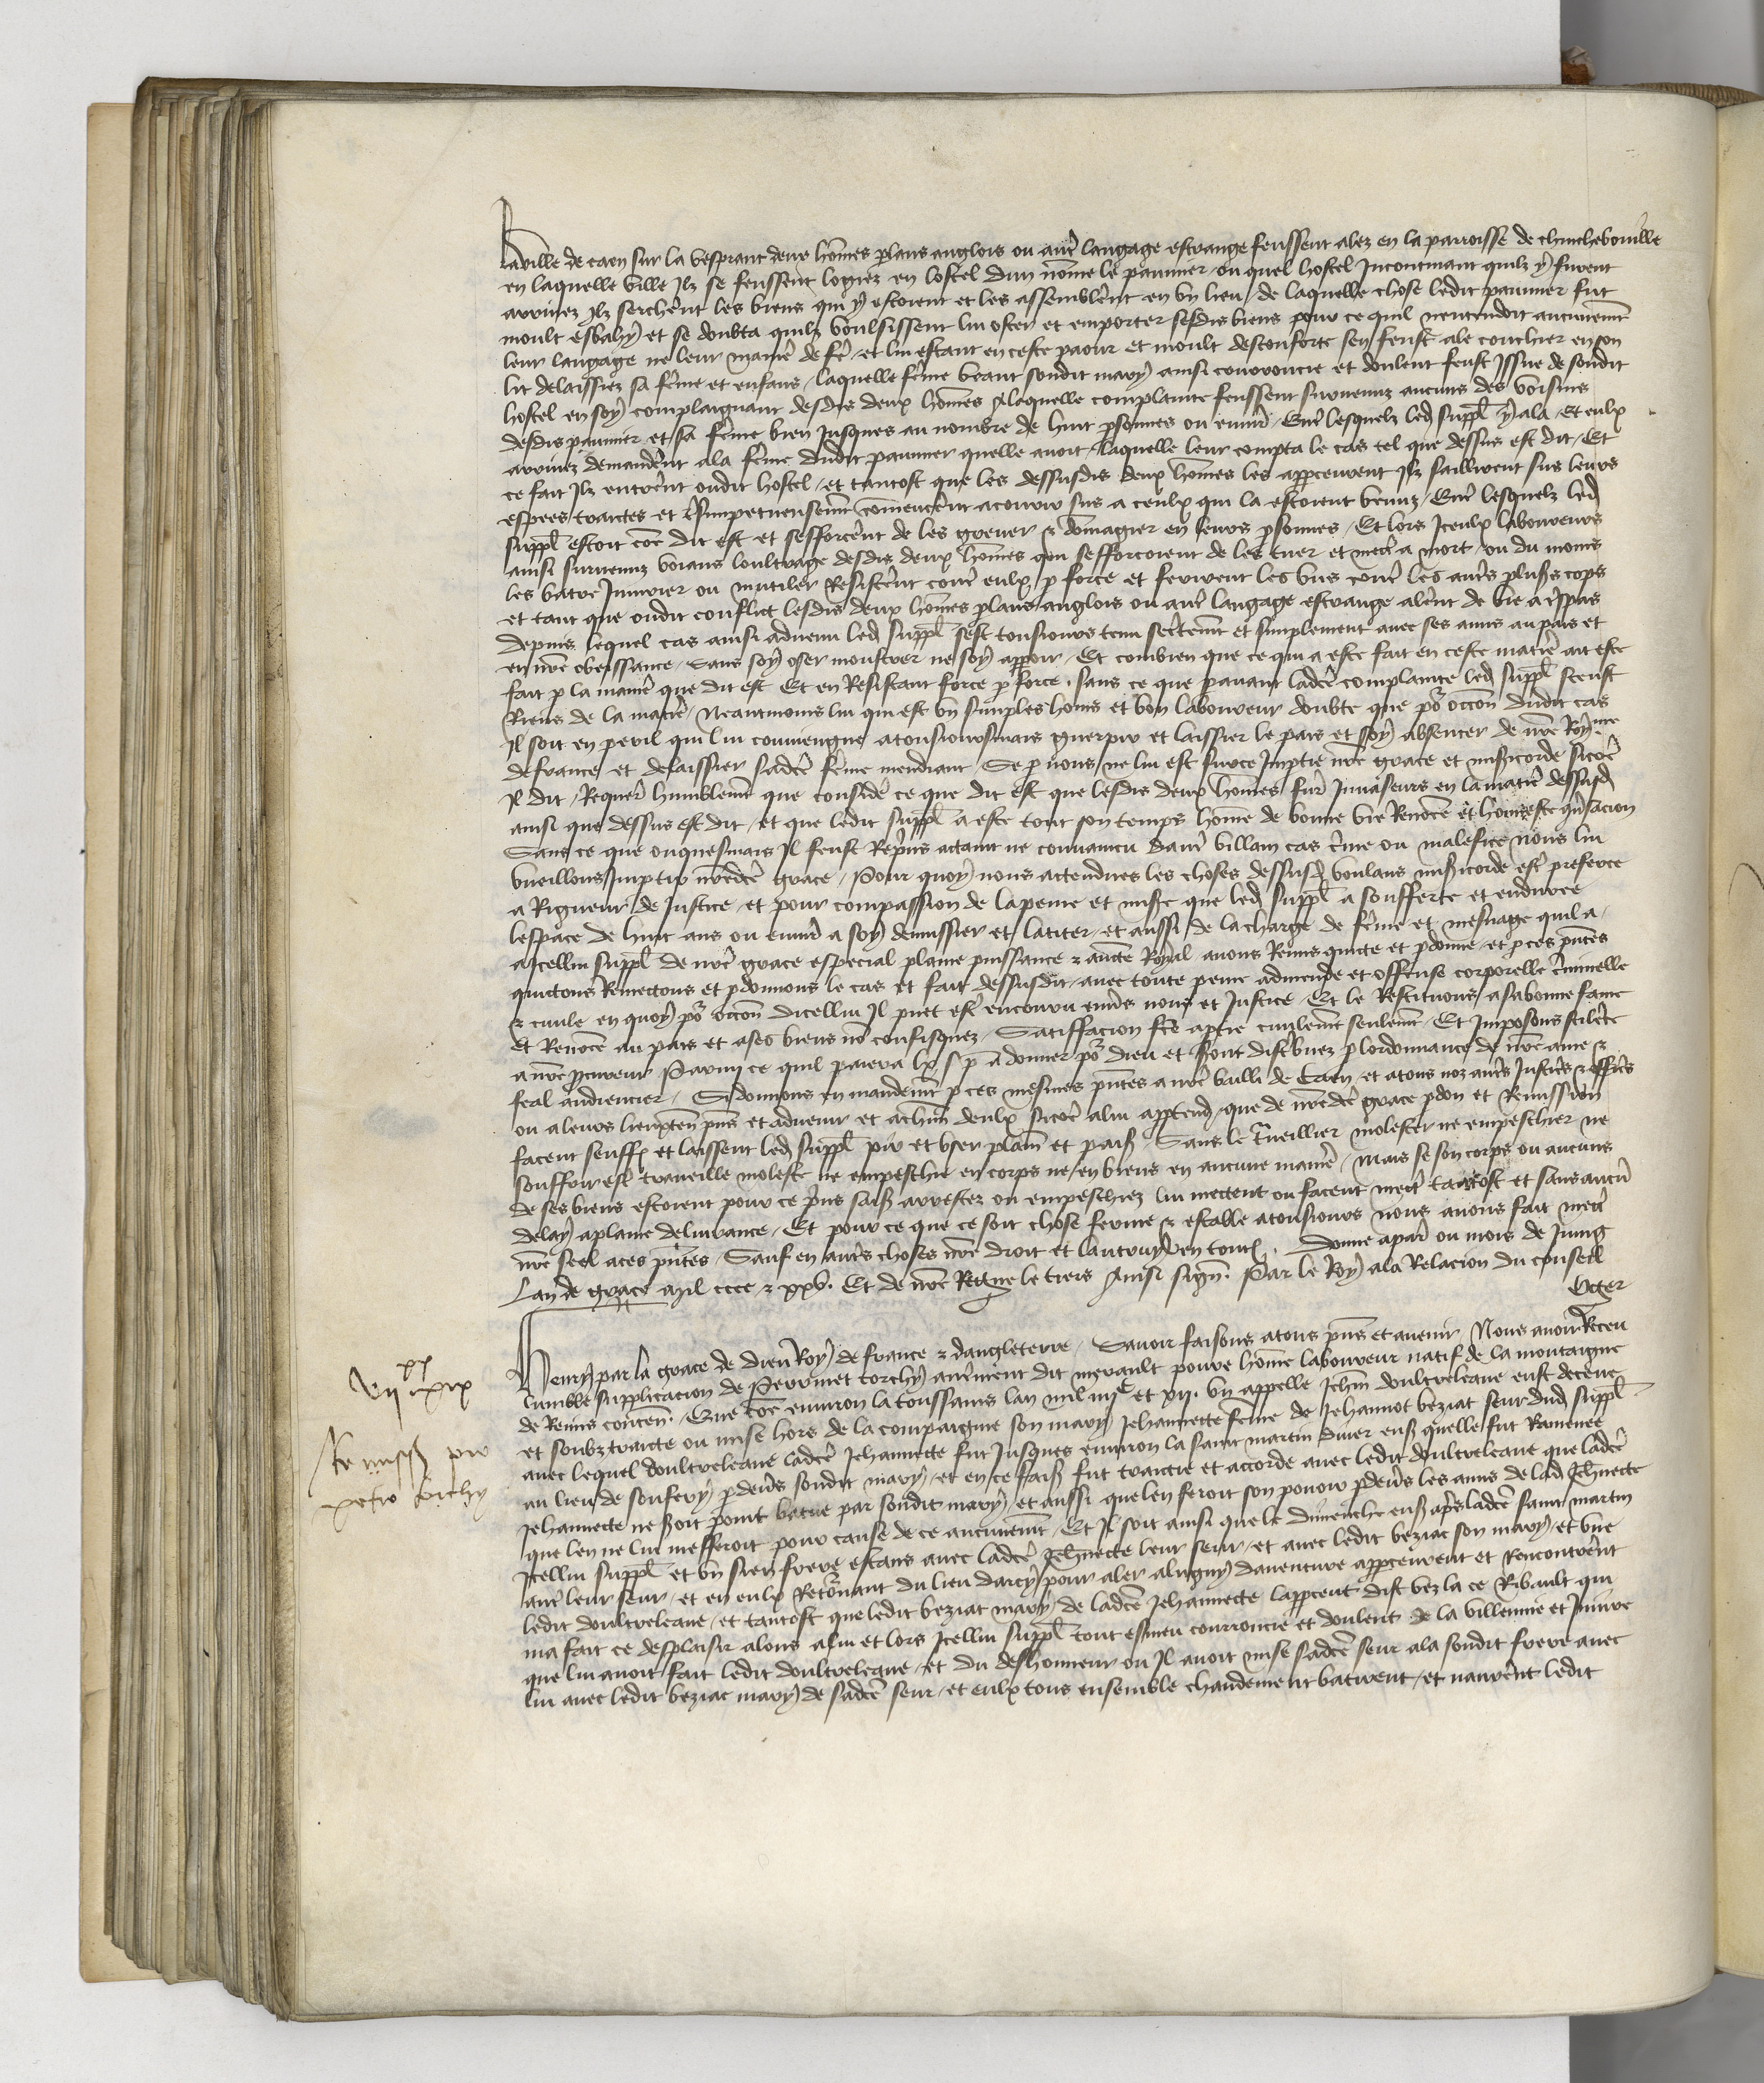 la ville de caen sur la vesprant deux hom̄es plans anglois ou autr̄ langage estrange feussent alez en la parroisse de chinchebouville
en laquelle ville Ilz se feussent logiez en lostel dun nōme le paumier ou quel hostel Incontinant quilz y furent
arrivez Ilz serchēnt les biens qui y estoient et les assemblēnt en un lieu / de laquelle chose ledit paumier fut
moult esbahy et se doubta quilz voulsissent lui oster et emporter sesdis biens pour ce quil nentendoit aucunemt̄
leur langage ne leur manier̄ de fer̄ / et lui estant en ceste paour et moult desconforte sen feust ale couchier en son
lit delaissiez sa fēme et enfans / laquelle fēme veant sondit mary ainsi courroucie et doulent feust Issue de sondit
hostel en soy complaignant desdis deux hom̄es A laquelle complainte feussent survenuz aucuns des voisins
desdis paumier et sa fēme bien Jusques au nombre de huit p̱sonnes ou envir̄ / Entr̄ lesquelz led suppl̄ y ala / Et eulx
arrivez demandēnt a la fēme dudit paumier quelle avoit / laquelle leur compta le cas tel que dessus est dit / Et
ce fait Ilz entrēnt oudit hostel / et tantost que les dessusdis deux hom̄es les app̱ceurent Ilz saillirent sus leurs
espees traictes et Impetueusemt̄ cōmencēnt a courir sus a ceulx qui la estoient venuz / Entr̄ lesquelz led
suppl̄ estoit cōe dit est et sefforcēnt de les grever & dōmagier en leurs p̱sonnes / Et lors Iceulx laboureurs
ainsi survenuz voians loultrage desdis deux hom̄es qui sefforcoient de les tuer et mectr̄ a mort / ou du moins
les batre Injurier ou mutiler Resistēnt contr̄ eulx p̱ force et ferirent les uns contr̄ les autr̄s pluss̄ cops
et tant que oudit conflict lesdis deux hom̄es plans anglois ou autr̄ langage estrange alēnt de vie a tr̄spas
depuis lequel cas ainsi advenu led suppl̄ sest tousiours tenu secr̄temt̄ et simplement avec ses amis au pais et
en nr̄e obeissance / Sans soy oser monstrer ne soy appoir / Et combien que ce qui a este fait en ceste matier̄ ait este
fait p̱ la manier̄ que dit est Et en Resistant force p̱ force / sans ce que p̱avant ladc̄e complainte led suppl̄ sceust
Riens de la matier̄ / Neantmoins lui qui est un simples homs et bon laboureur doubte que po͛ occōn dudit cas
Il soit en peril quil lui conviengne a tousioursmais guerpir et laissier le pais et soy absenter de nr̄e Roy.me
de france et delaissier sadc̄e fēme mendiant / Se p̱ nous ne lui est sur ce Imp̱tie nr̄e grace et misericorde sicōe
Il dit / Requer̄ humblemt̄ que consider̄ ce que dit est que lesdis deux hom̄es fur̄t Invaseurs en la matier̄ dessusd
ainsi que dessus est dit / et que ledit suppl̄ a este tout son temps hom̄e de bonne vie Renōmee et honneste q̱v̄sacion
Sans ce que onquesmais Il feust Rep̄rins actaint ne convaincu dautr̄ villain cas cr̄ime ou malefice nous lui
vueillons Imp̱tir nr̄edc̄e grace / Pour quoy nous actendues les choses dessusd voulans mis̄icorde estr̄ preferee
a Rigueur de Justice / et pour compassion de la peine et mise que led suppl̄ a soufferte et enduree
lespace de huit ans ou envir̄ a soy demussier et latiter / et aussi de la charge de fēme et mesnage quil a /
a Icellui suppl̄ de nr̄e grace especial plaine puissance & auctē Royal avons Remis quicte et p̱donne / et p̱ ces p̄ntes
quictons Remectons et p̱donnons le cas et fait dessusdit / avec toute peine admende et offense corporelle cr̄iminelle
& civile en quoy po͛ occōn dicellui Il puet estr̄ encouru env̄s nous et Justice / Et le Restituons a sa bonne fame
et Renōmee au pais et a ses biens nō confisquez / Satisfacion fc̄e a p̱tie civilemt̄ seulemt̄ / Et Imposons sciler̄ce
a nr̄e procureur Parmy ce quil paiera lx s̄ p̱ a donner po͛ dieu et p̱ont distribuez p̱ lordonnance de nr̄e ame &
feal audiencier / Si donnons en mandemt̄ p̱ ces mesmes p̄ntes a nr̄e bailli de Caen / et a tous noz autr̄s Justic̄s & offic̄s
ou a leurs lieuxten̄ p̄ns et advenir et a chm̄ deulx sicōe a lui app̱tend̄ / que de nr̄edc̄e grace p̱don et Remission
facent seuffr̄ et laissent led suppl̄ joir et user plain̄ et paiss̄ / Sans le tr̄veillier molester ne empeschier ne
souffrir estr̄ traveillie moleste ne empeschie en corps ne en biens en aucune manier̄ / Mais se son corps ou aucuns
de ses biens estoient pour ce p̄rins saiss̄ arrestez ou empeschiez lui mectent ou facent mectr̄ tantost et sans aucū
delay a plaine delivrance / Et pour ce que ce soit chose ferme & estable a tousiours nous avons fait mectr̄
nr̄e seel a ces p̄ntes / Sauf en autr̄s choses nr̄e droit et lautruy en tout / Donne a par̄ ou mois de Juing
Lan de grace mil cccc & xxv. Et de nr̄e Regne le tiers Ainsi sign̄. Par le Roy a la Relacion du conseil
Oger
vii xx xix
Remiss̄ pro
petro torchy
Henry par la grace de dieu Roy de france & dangleterre / Savoir faisons a tous p̄ns et avenir Nous avoir Receu
lumble supplicacion de Perrinet torchy autr̄ment dit merault povre hom̄e laboureur natif de la montaigne
de Reins conten̄. Que cōe environ la toussains lan mil iiiic et xii. un appelle Jehm̄ doultreleaue eust deceue
et soubztraicte ou mise hors de la compaignie son mary Jehannecte fēme de Jehannot beziat seur dud suppl̄
avec lequel doultreleaue ladc̄e Jehannecte fut Jusques environ la saint martin diver ens̄ quelle fut Ramenee
au lieu de soufery p̱dev̄s sondit mary / et en ce fais̄ fut traictie et accorde avec ledit doultreleaue que ladc̄e
Jehannecte ne seroit point batue par sondit mary / et aussi que len feroit son povoir p̱dev̄s les amis de lad Jehn̄ecte
que len ne lui mefferoit pour cause de ce aucunemt̄ / Et Il soit ainsi que le dimenche ens̄ apr̄s ladc̄e saint martin
Icellui suppl̄ et un sien frere estans avec ladc̄e Jehn̄ecte leur seur / et avec ledit beziat son mary / et une
autr̄ leur seur / et en eulx Reto͛nant du lieu darcy pour aler a lugny daventure app̱ceurent et Rencontrēnt
ledit doultreleaue / et tantost que ledit beziat mary de ladc̄e Jehannecte lapp̱ceut dist vez la ce Ribault qui
ma fait ce desplaisir alons a lui et lors Icellui suppl̄ tout esmeu courroucie et doulent de la villennie et Injure
que lui avoit fait ledit doultreleaue / et du deshonneur ou Il avoit mise sadc̄e seur ala sondit frere avec
lui avec ledit beziat mary de sadc̄e seur / et eulx tous ensemble chaudement batirent / et navrēnt ledit